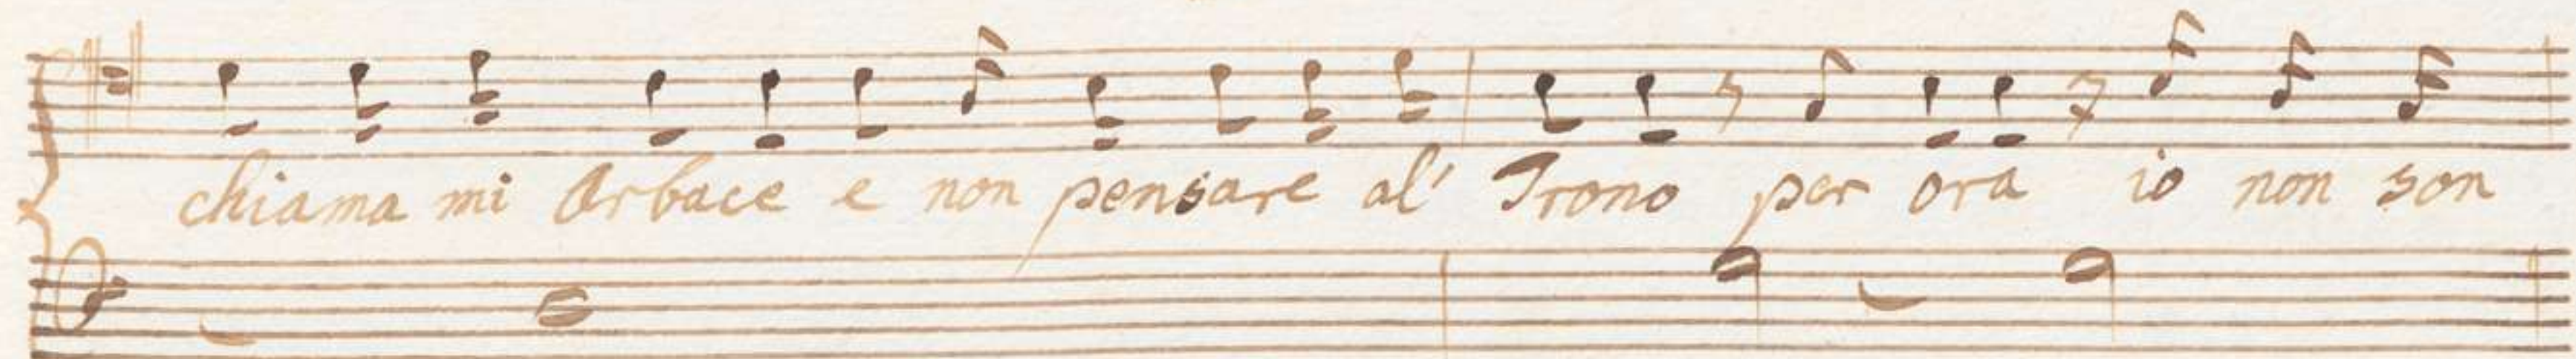 chiama mi Arbace e non pensare al' Trono per ora io non son